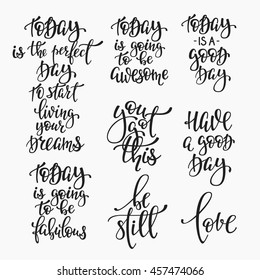 Today
is the perfect
Day
to start
living
your
Dreams
Today
is going
to be
awesome
Today
is a
good
Day
you
got
this
Have
a good
Day
Today
is going
to be
fabulous
be
still
love
shutterstock
IMAGE ID: 457474066
www.shutterstock.com